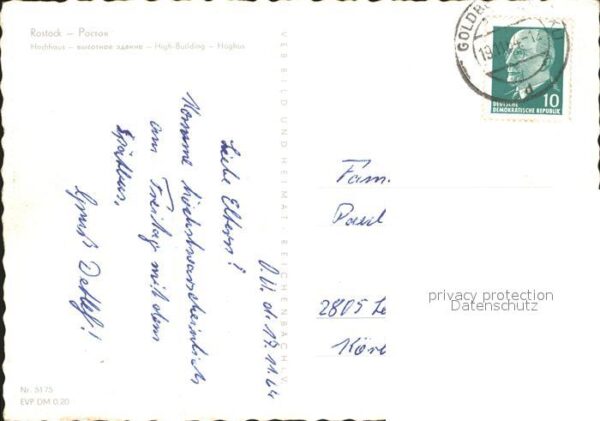 Rostock – Росток
Hochhaus – высотное здание – High-Building – Höghus
VEB BILD UND HEIMAT · REICHENBACH I.V.
19.11.64-12
DEUTSCHE
DEMOKRATISCHE REPUBLIK
10
O. Ü. d. 17.11.64
Liebe Eltern!
Komme höchstwarscheinlich
am Freitag mit dem
Spätbus.
Gruß Detlef!
Fam.
Paul
2805
privacy protection
Datenschutz
Nr. 5175
EVP DM 0,20